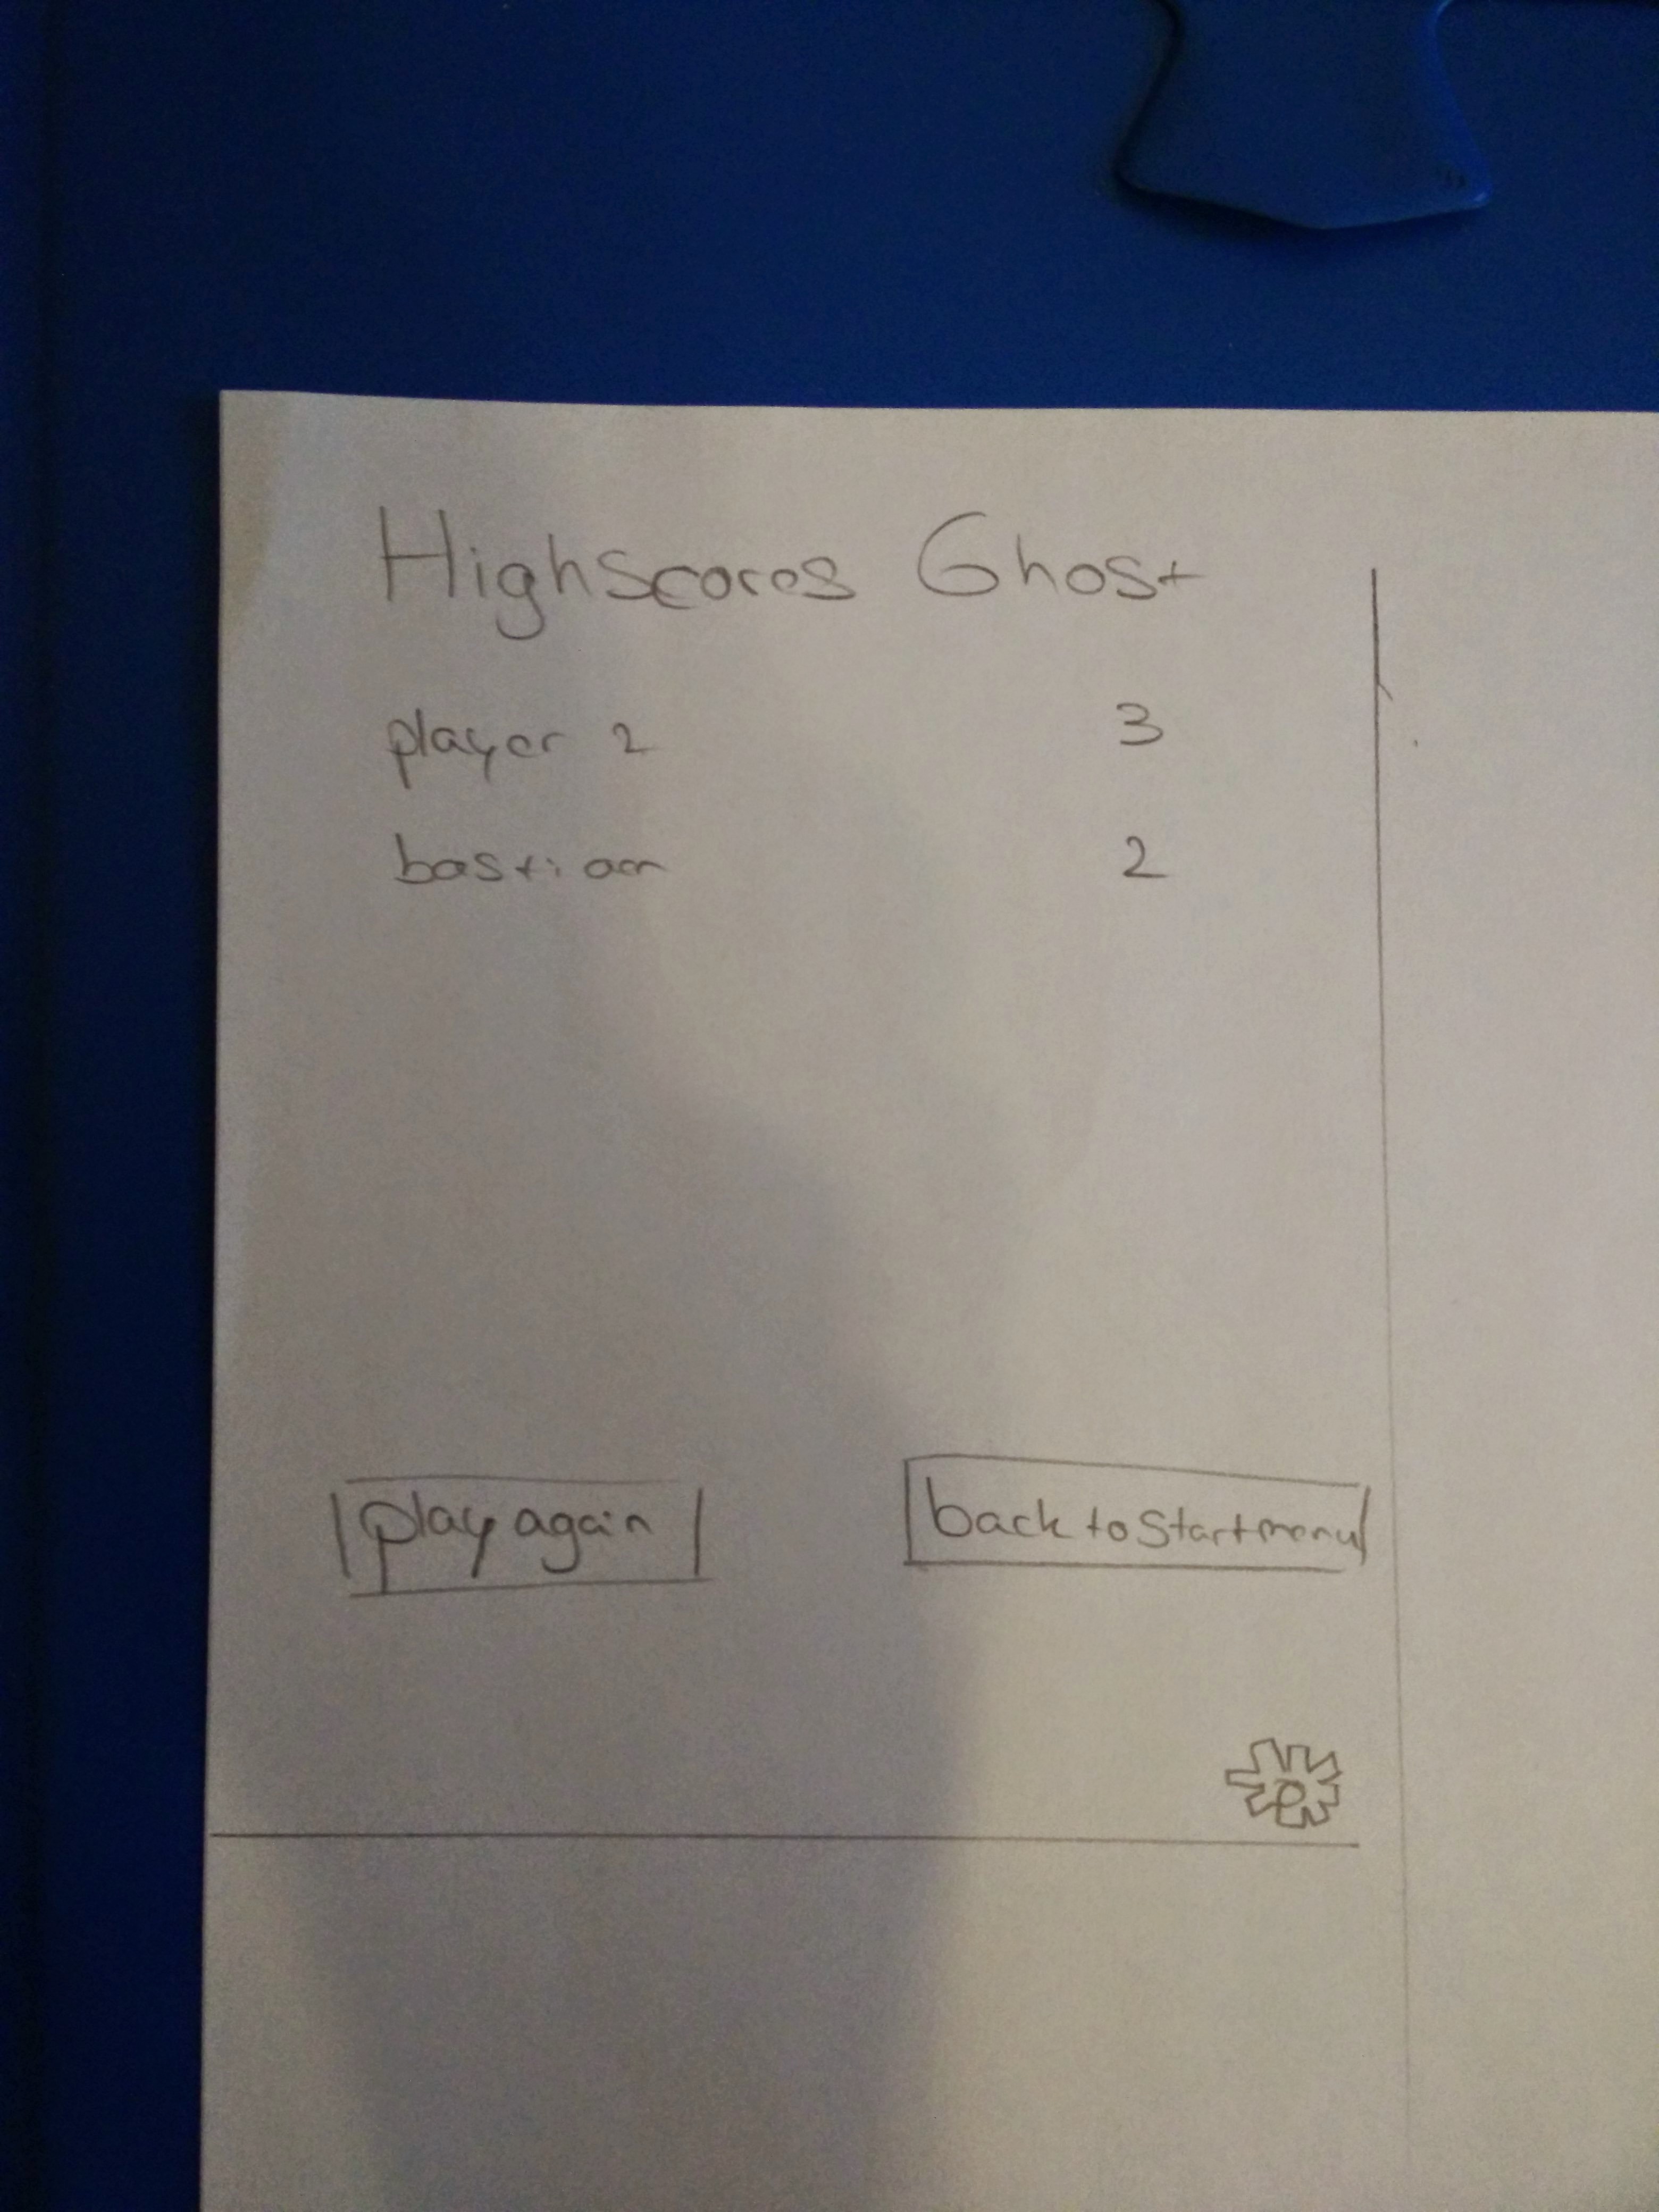 Highscores Ghost
player 2 3
bastiaan 2
play again back to Startmenu